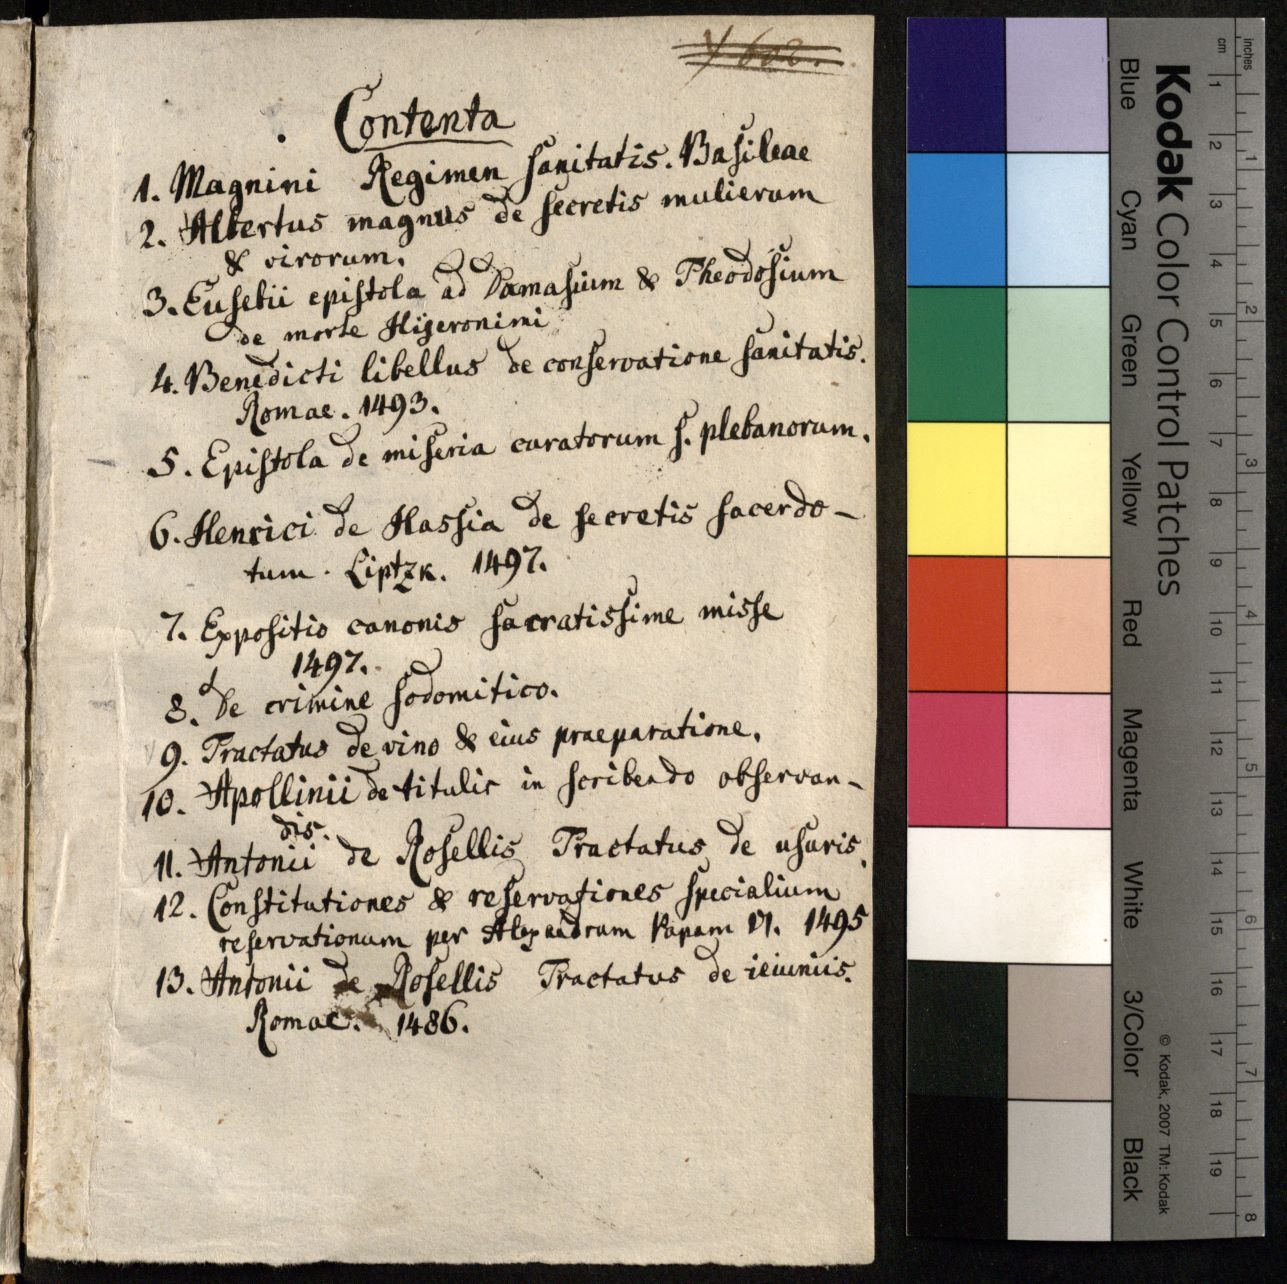 Y 602.
Contenta
1. Magnini Regimen sanitatis. Basileae
2. Albertus magnus de secretis mulierum
& virorum.
3. Eusebii epistola ad Damasium & Theodosium
de morte Hijeronimi
4. Benedicti libellus de conservatione sanitatis.
Romae. 1493.
5. Epistola de miseria curatorum s. plebanorum.
6. Henrici de Hassia de secretis sacerdo-
tum. Liptzk. 1497.
7. Expositio canonis sacratissime misse
1497.
8. De crimine sodomitico.
9. Tractatus de vino & eius praeparatione.
10. Apollinii de titulis in scribendo observan-
dis.
11. Antonii de Rosellis Tractatus de usuris.
12. Constitutiones & reservationes specialium
reservationum per Alexandrum Papam VI. 1495
13. Antonii de Rosellis Tractatus de ieiuniis.
Romae. 1486.
Kodak Color Control Patches
Blue Cyan Green Yellow Red Magenta White 3/Color Black
© Kodak, 2007 TM: Kodak
cm 1 2 3 4 5 6 7 8 9 10 11 12 13 14 15 16 17 18 19
inches 1 2 3 4 5 6 7 8